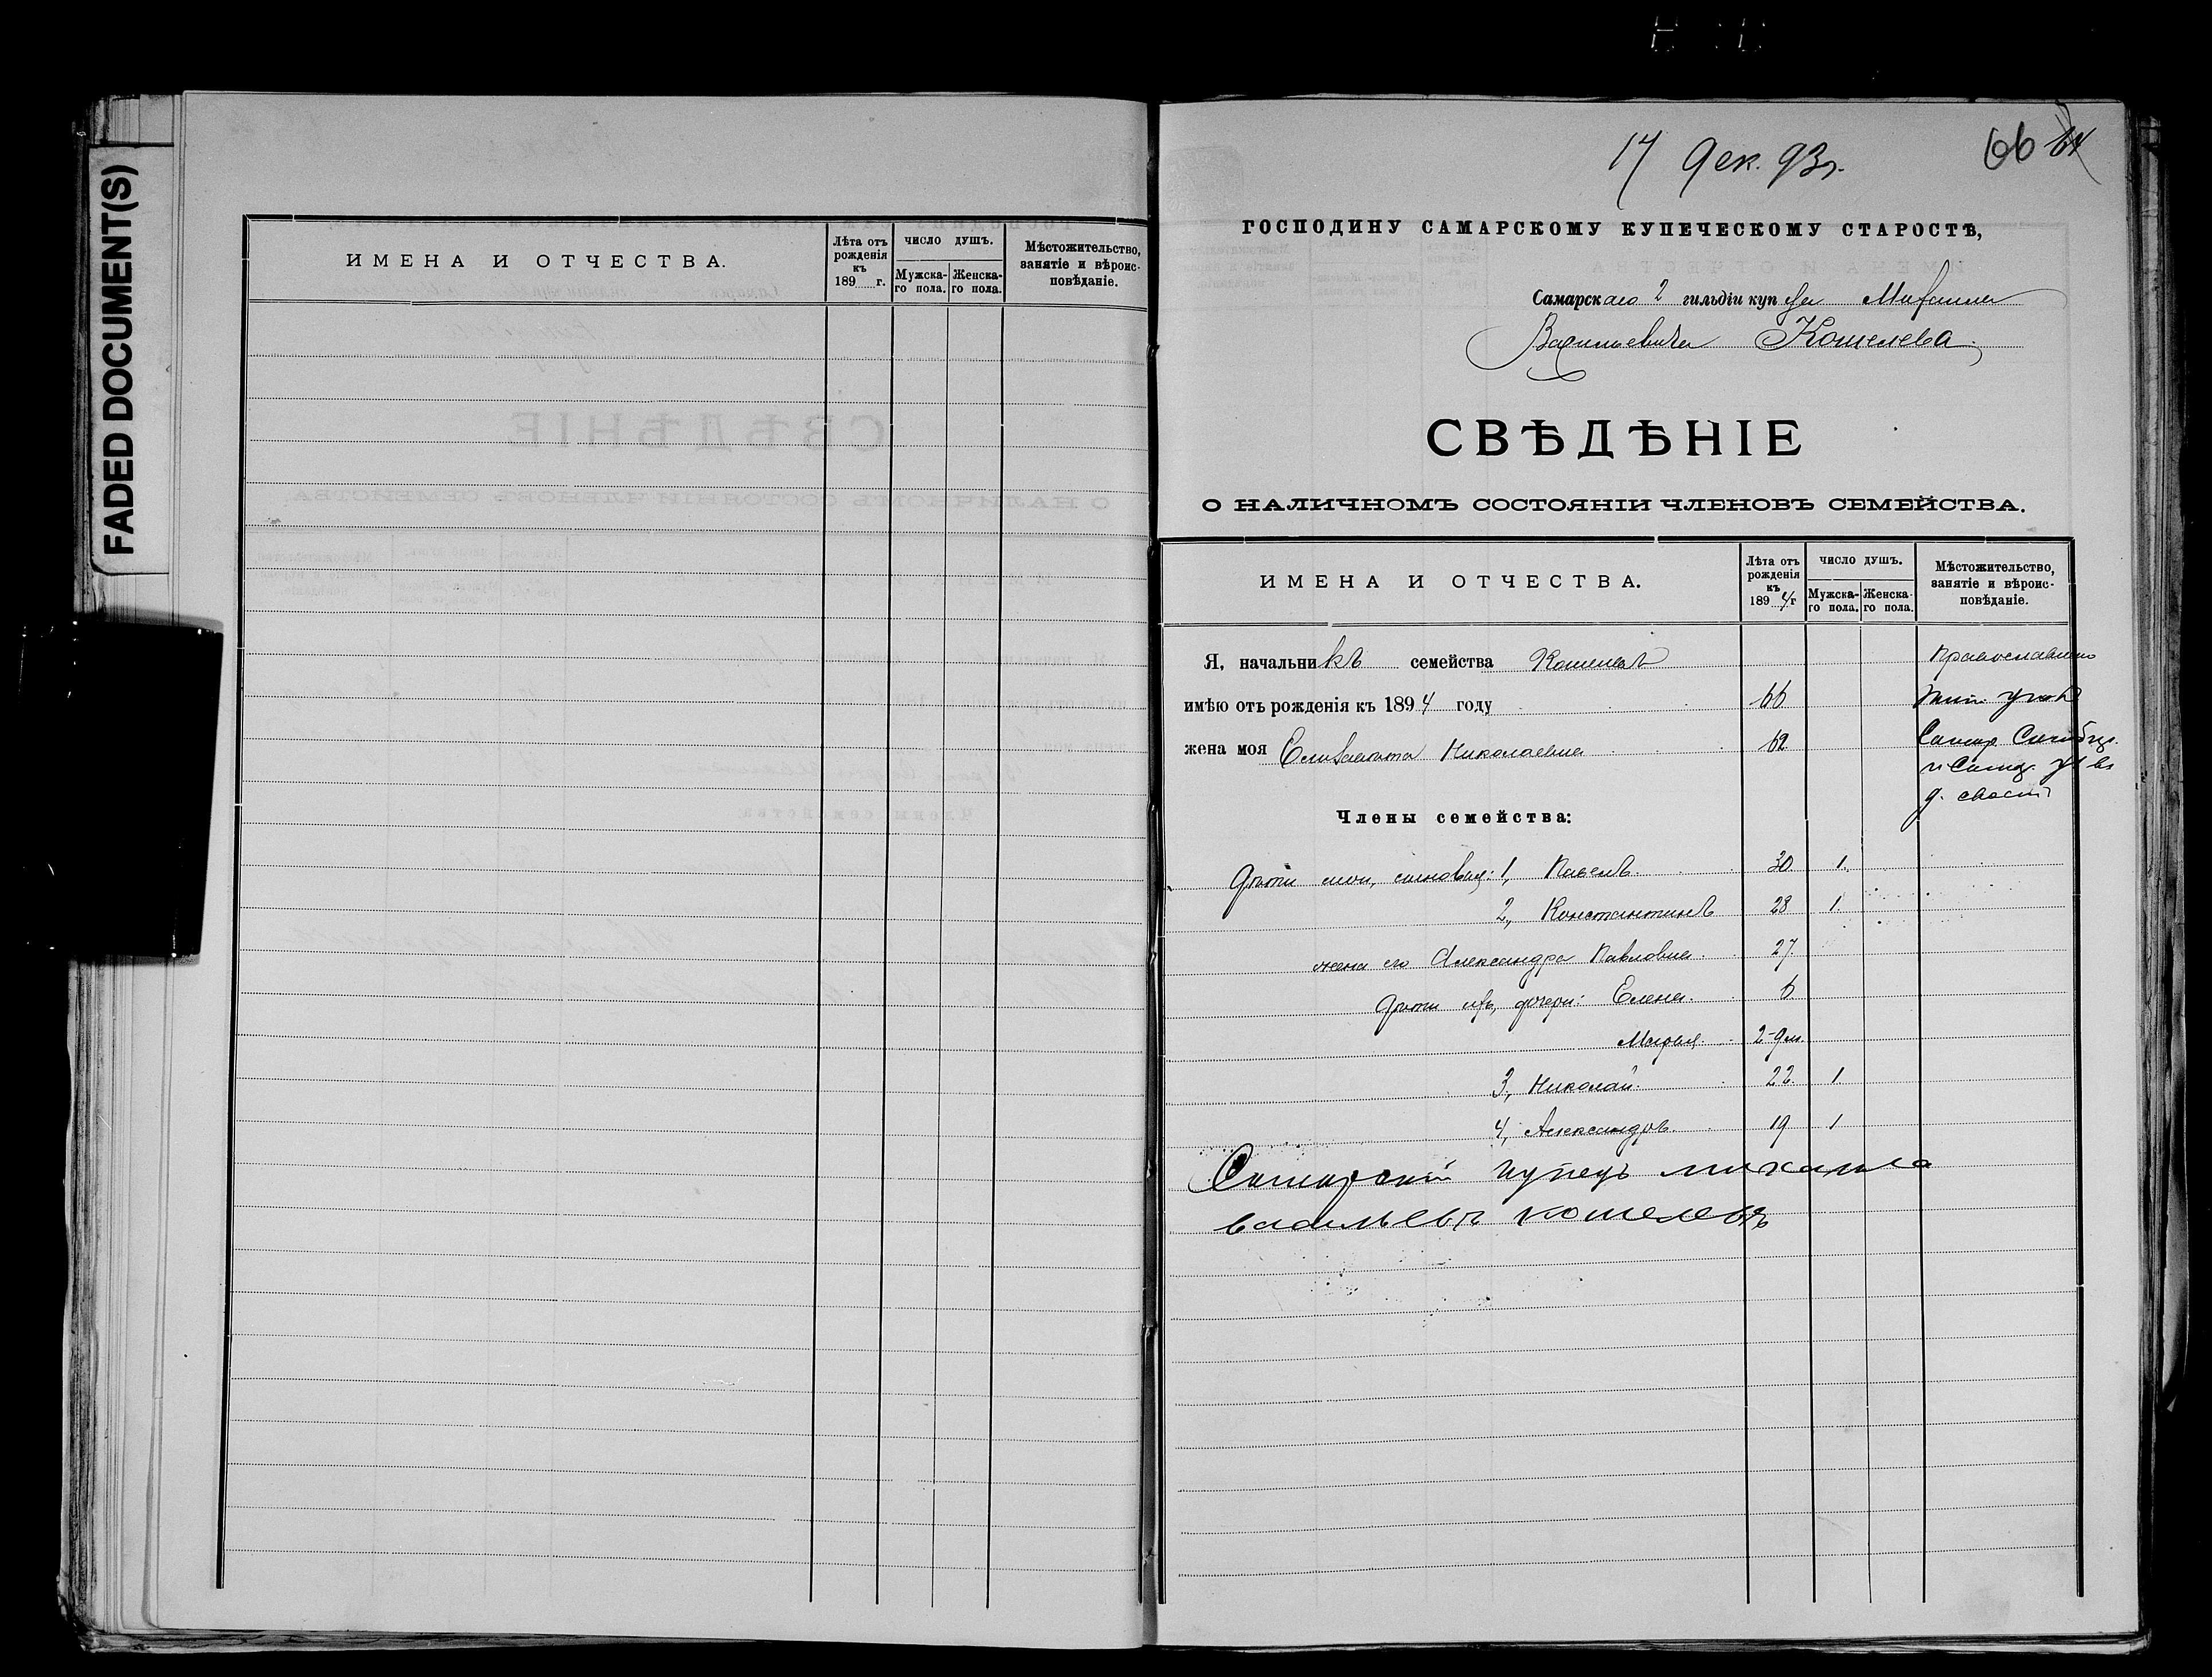 FADED DOCUMENT(S)
ИМЕНА И ОТЧЕСТВА.
Лѣта отъ рожденія къ 189 г.
ЧИСЛО ДУШЪ.
Мужска-го пола.
Женска-го пола.
Мѣстожительство, занятіе и вѣроис-повѣданіе.
17 Дек. 93 г.
66 64
ГОСПОДИНУ САМАРСКОМУ КУПЕЧЕСКОМУ СТАРОСТѢ,
Самарскаго 2 гильдіи купца Михаила
Васильевича Кошелева.
СВѢДѢНІЕ
О НАЛИЧНОМЪ СОСТОЯНІИ ЧЛЕНОВЪ СЕМЕЙСТВА.
ИМЕНА И ОТЧЕСТВА.
Лѣта отъ рожденія къ 1894 г
ЧИСЛО ДУШЪ.
Мужска-го пола.
Женска-го пола.
Мѣстожительство, занятіе и вѣроис-повѣданіе.
Я, начальникъ семейства Кошелевъ
имѣю отъ рожденія къ 1894 году 66
жена моя Елизавета Николаевна 62
Члены семейства:
Дѣти мои, сыновья: 1, Павелъ. 30 1.
2, Константинъ 28 1.
жена его Александра Павловна 27
Дѣти ихъ, дочери: Елена. 6
Марья. 2-9 м.
3, Николай. 22. 1
4, Александръ. 19 1
Самарскій купецъ михаила
васильевъ кошелевъ